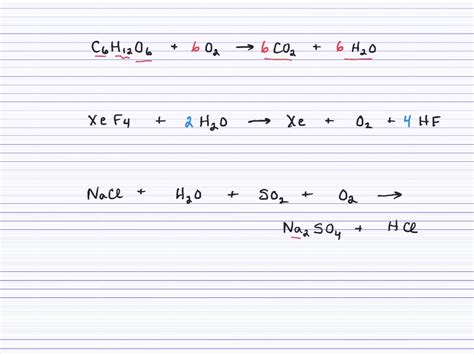 C₆H₁₂O₆ + 6 O₂ → 6 CO₂ + 6 H₂O
XeF₄ + 2 H₂O → Xe + O₂ + 4 HF
NaCl + H₂O + SO₂ + O₂ →
Na₂SO₄ + HCl